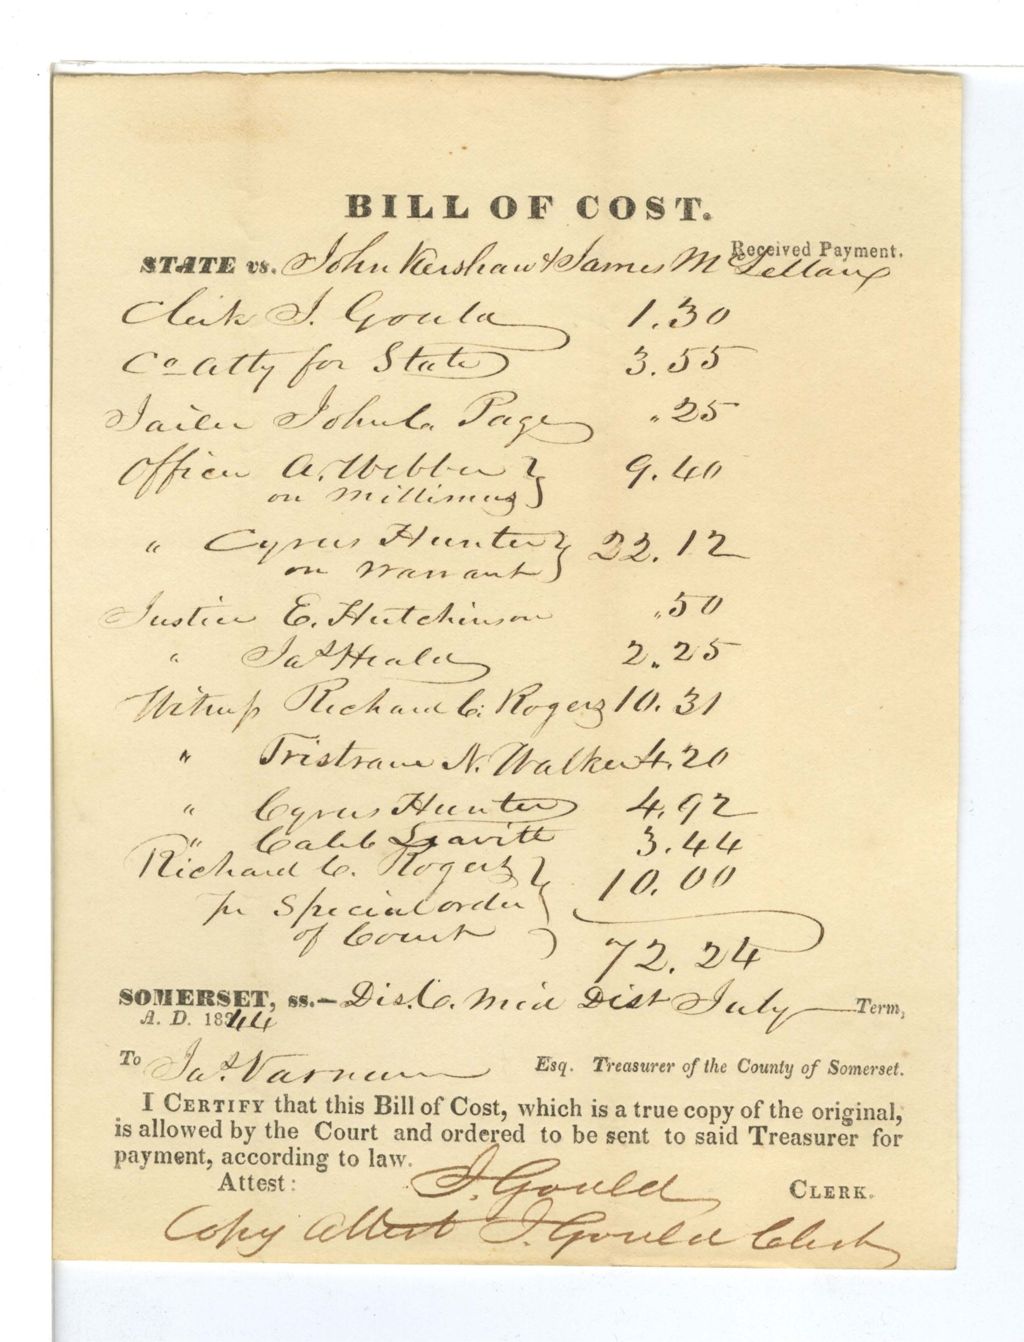 BILL OF COST.
Received Payment.
STATE vs. John Kershaw & James McLellan
Clerk J. Gould 1.30
Co Atty for State 3.55
Jailer John C. Page .25
Officer A. Webber 9.40
on Mittimus
" Cyrus Hunter 22.12
on Warrant
Justice E. Hutchinson .50
" Jas Heald 2.25
Witness Richard C. Rogers 10.31
" Tristram N. Walker 4.20
" Cyrus Hunter 4.92
" Caleb Leavitt 3.44
Richard C. Rogers 10.00
pr Special order
of Court
72.24
SOMERSET, ss.— Dis. C. Mid Dist July Term,
A. D. 1844
To Jas. Varnum Esq. Treasurer of the County of Somerset.
I CERTIFY that this Bill of Cost, which is a true copy of the original,
is allowed by the Court and ordered to be sent to said Treasurer for
payment, according to law.
Attest: J. Gould CLERK.
Copy Attest J. Gould Clerk